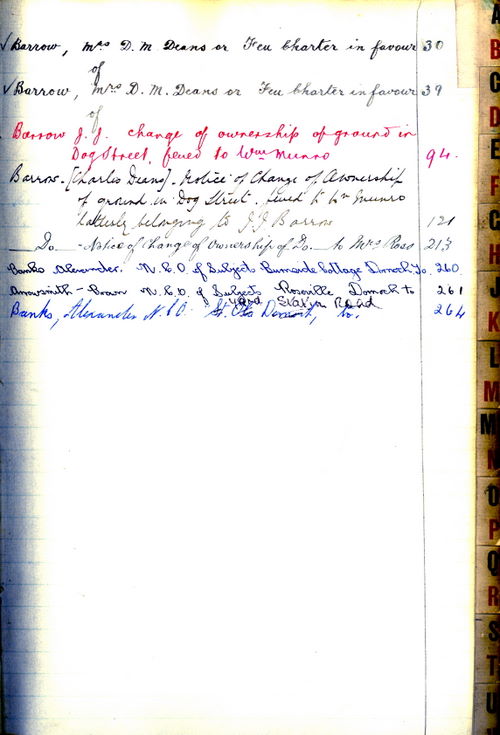 √ Barrow, Mrs D. M. Deans or Feu Charter in favour 30
of
√ Barrow, Mrs D. M. Deans or Feu Charter in favour 39
of
Barrow J. J. change of ownership of ground in
Dog Street, feued to Wm Munro 94.
Barrow - [Charles Deans] - Notice of Change of Ownership
of ground in Dog Street feued to Wm Munro
latterly belonging to J J Barrow 121
Do. - Notice of Change of Ownership of Do. to Mrs Ross 213
Banks Alexander. N.C.O. of Subjects Burnside Cottage Dornoch to. 260
Arrowsmith-Brown N.C.O. of Subjects Roseville Dornoch to 261
yard Station Road
Banks, Alexander N.C.O. St. Dornoch, to. 264
A
B
C
D
E
F
G
H
J
K
L
M
M
N
O
P
Q
R
S
T
U